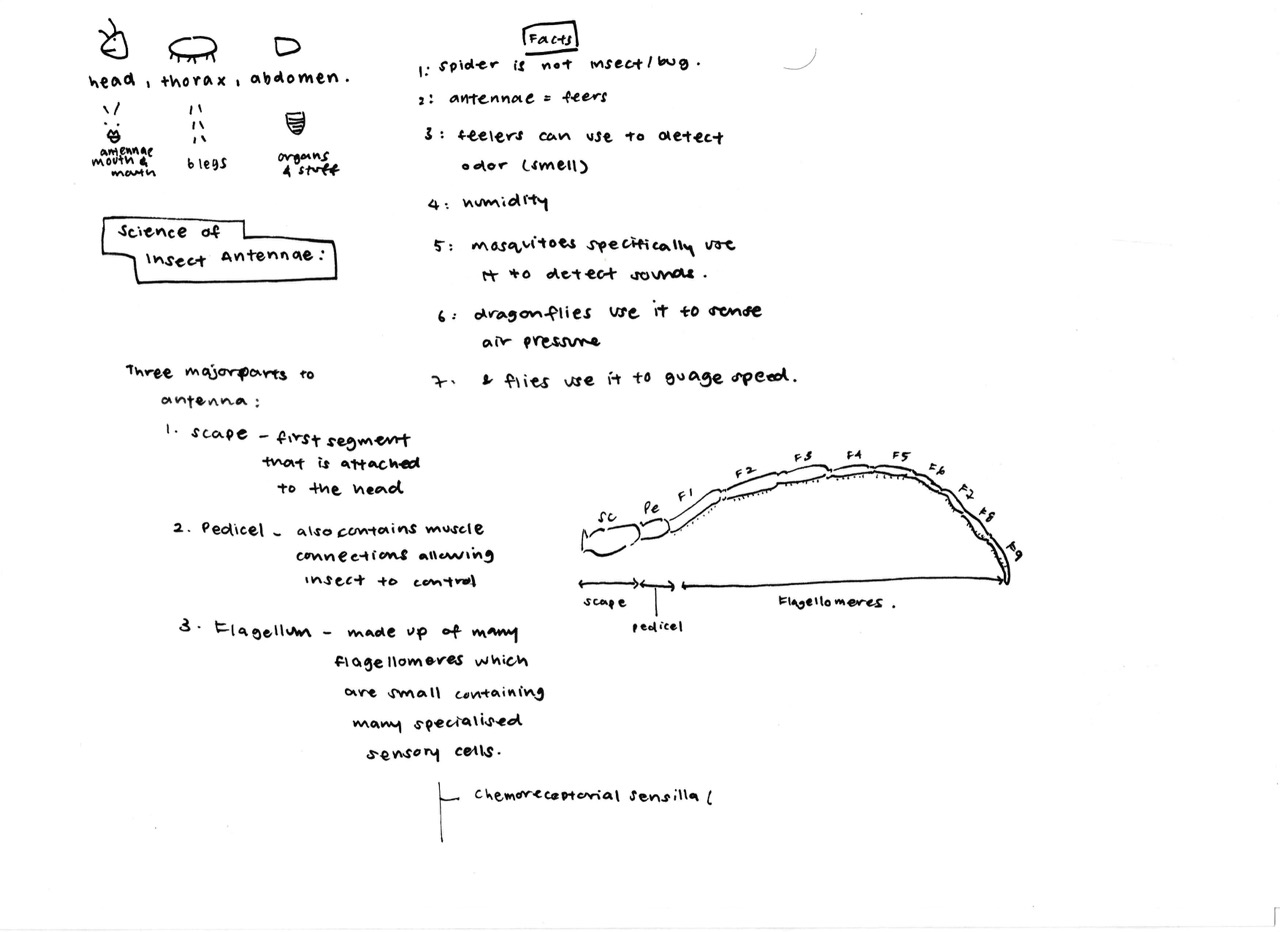 head, thorax, abdomen.
antennae
mouth &
mouth
6 legs
organs
& stuff
Science of
Insect Antennae:
Three major parts to
antenna:
1. scape - first segment
that is attached
to the head
2. Pedicel - also contains muscle
connections allowing
insect to control
3. Flagellum - made up of many
flagellomeres which
are small containing
many specialised
sensory cells.
chemoreceptorial sensilla (
Facts
1: spider is not insect/bug.
2: antennae = feers
3: feelers can use to detect
odor (smell)
4: humidity
5: mosquitoes specifically use
it to detect sounds.
6: dragonflies use it to sense
air pressure
7. & flies use it to guage speed.
Sc
Pe
F1
F2
F3
F4
F5
F6
F7
F8
F9
scape
pedicel
Flagellomeres.